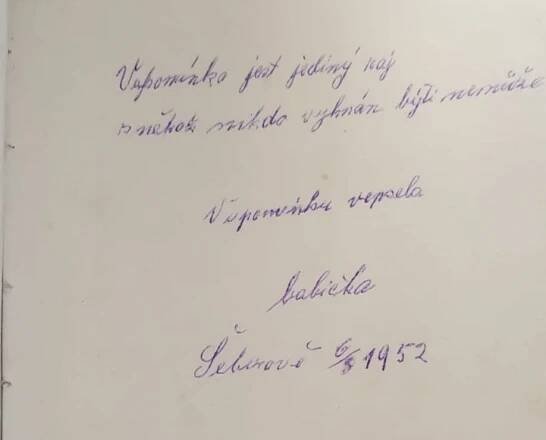 Vzpomínka jest jediný ráj
z něhož nikdo vyhnán býti nemůže
Vzpomínku vepsala
babička
1952